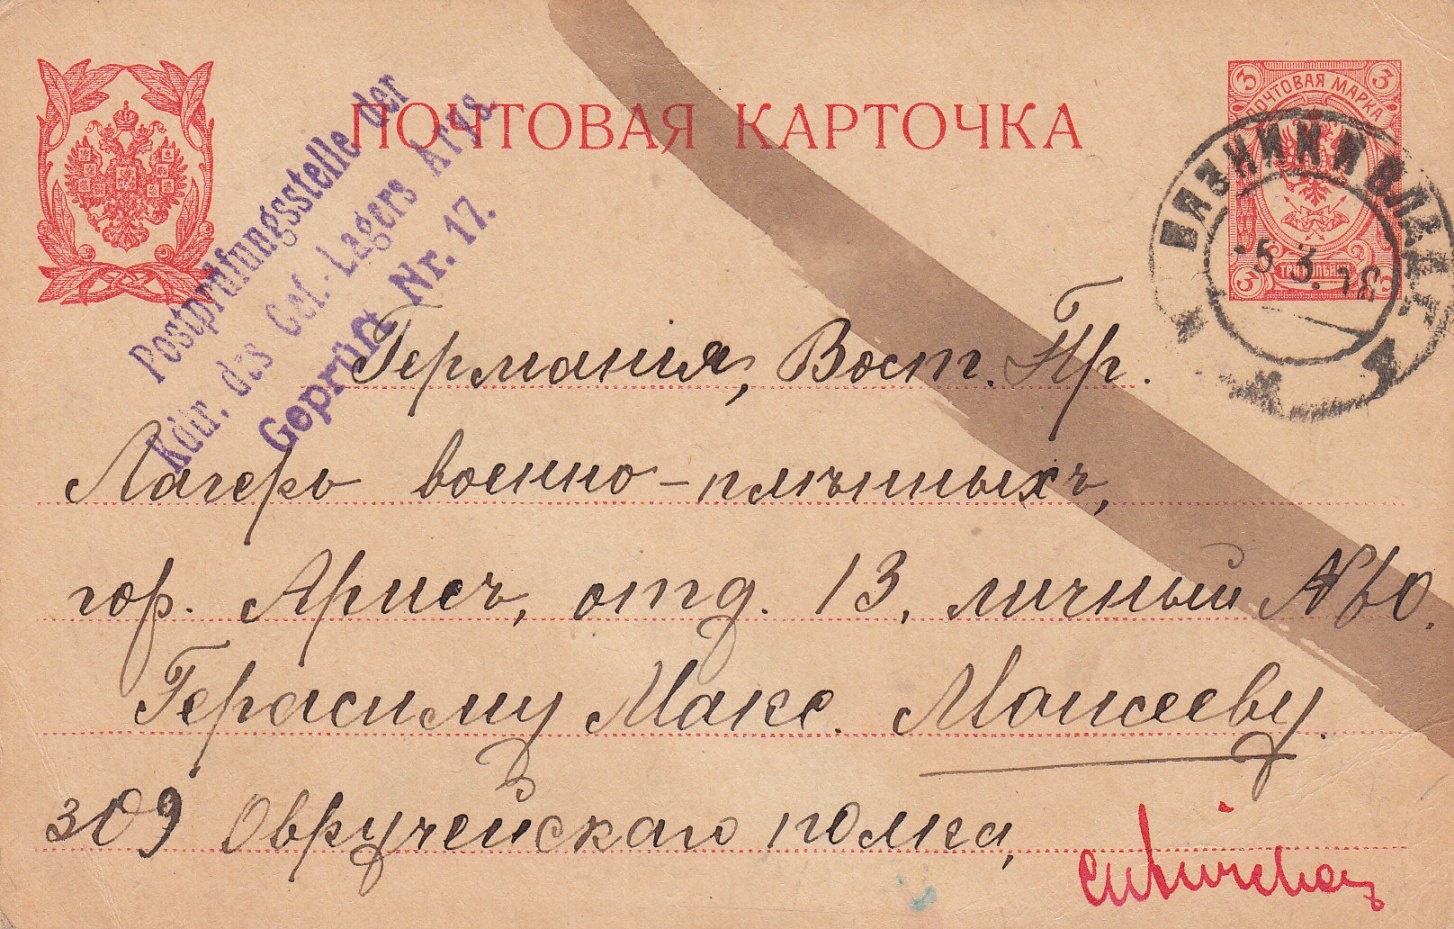 ПОЧТОВАЯ КАРТОЧКА
3 3
ПОЧТОВАЯ МАРКА
3 3
ВЯЗНИКИ ВЛАД. Г.
-5.3.16
Postprüfungsstelle der
Kdtr. des Gef.-Lagers Arys
Geprüft Nr. 17.
Германія, Вост. Пр.
Лагерь военно-плѣнныхъ,
гор. Арисъ, отд. 13, личный №0.
Герасиму Макс. Моисееву.
309 Овручейскаго полка,